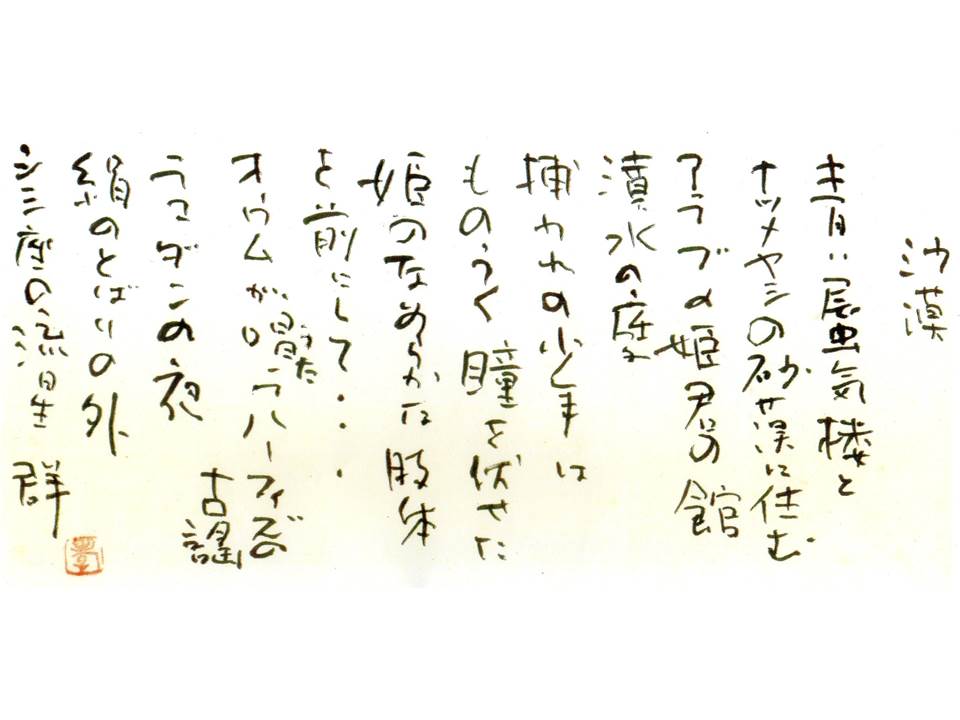 沙漠
青い蜃気楼と
ナツメヤシの砂漠に住む
アラブの姫君の館
漬水の庭
捕われの少年は
ものうく瞳を伏せた
姫のなめらかな肢体
を前にして・・・
オウムが唱うハーフィズの
うた
古謡
ラマダンの夜
絹のとばりの外
シシ座の流星群